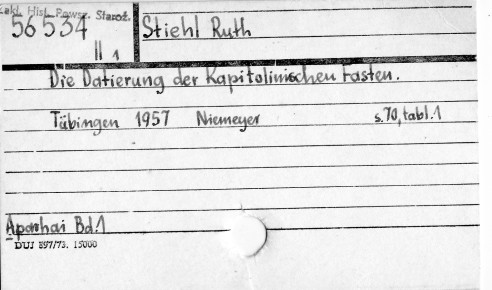 Zakł. Hist. Powsz. Staroż.
56534
II 1
Stiehl Ruth
Die Datierung der Kapitolinischen Fasten.
Tübingen 1957 Niemeyer s.70, tabl.1
Aparhai Bd.1
DUJ 897/73. 15000